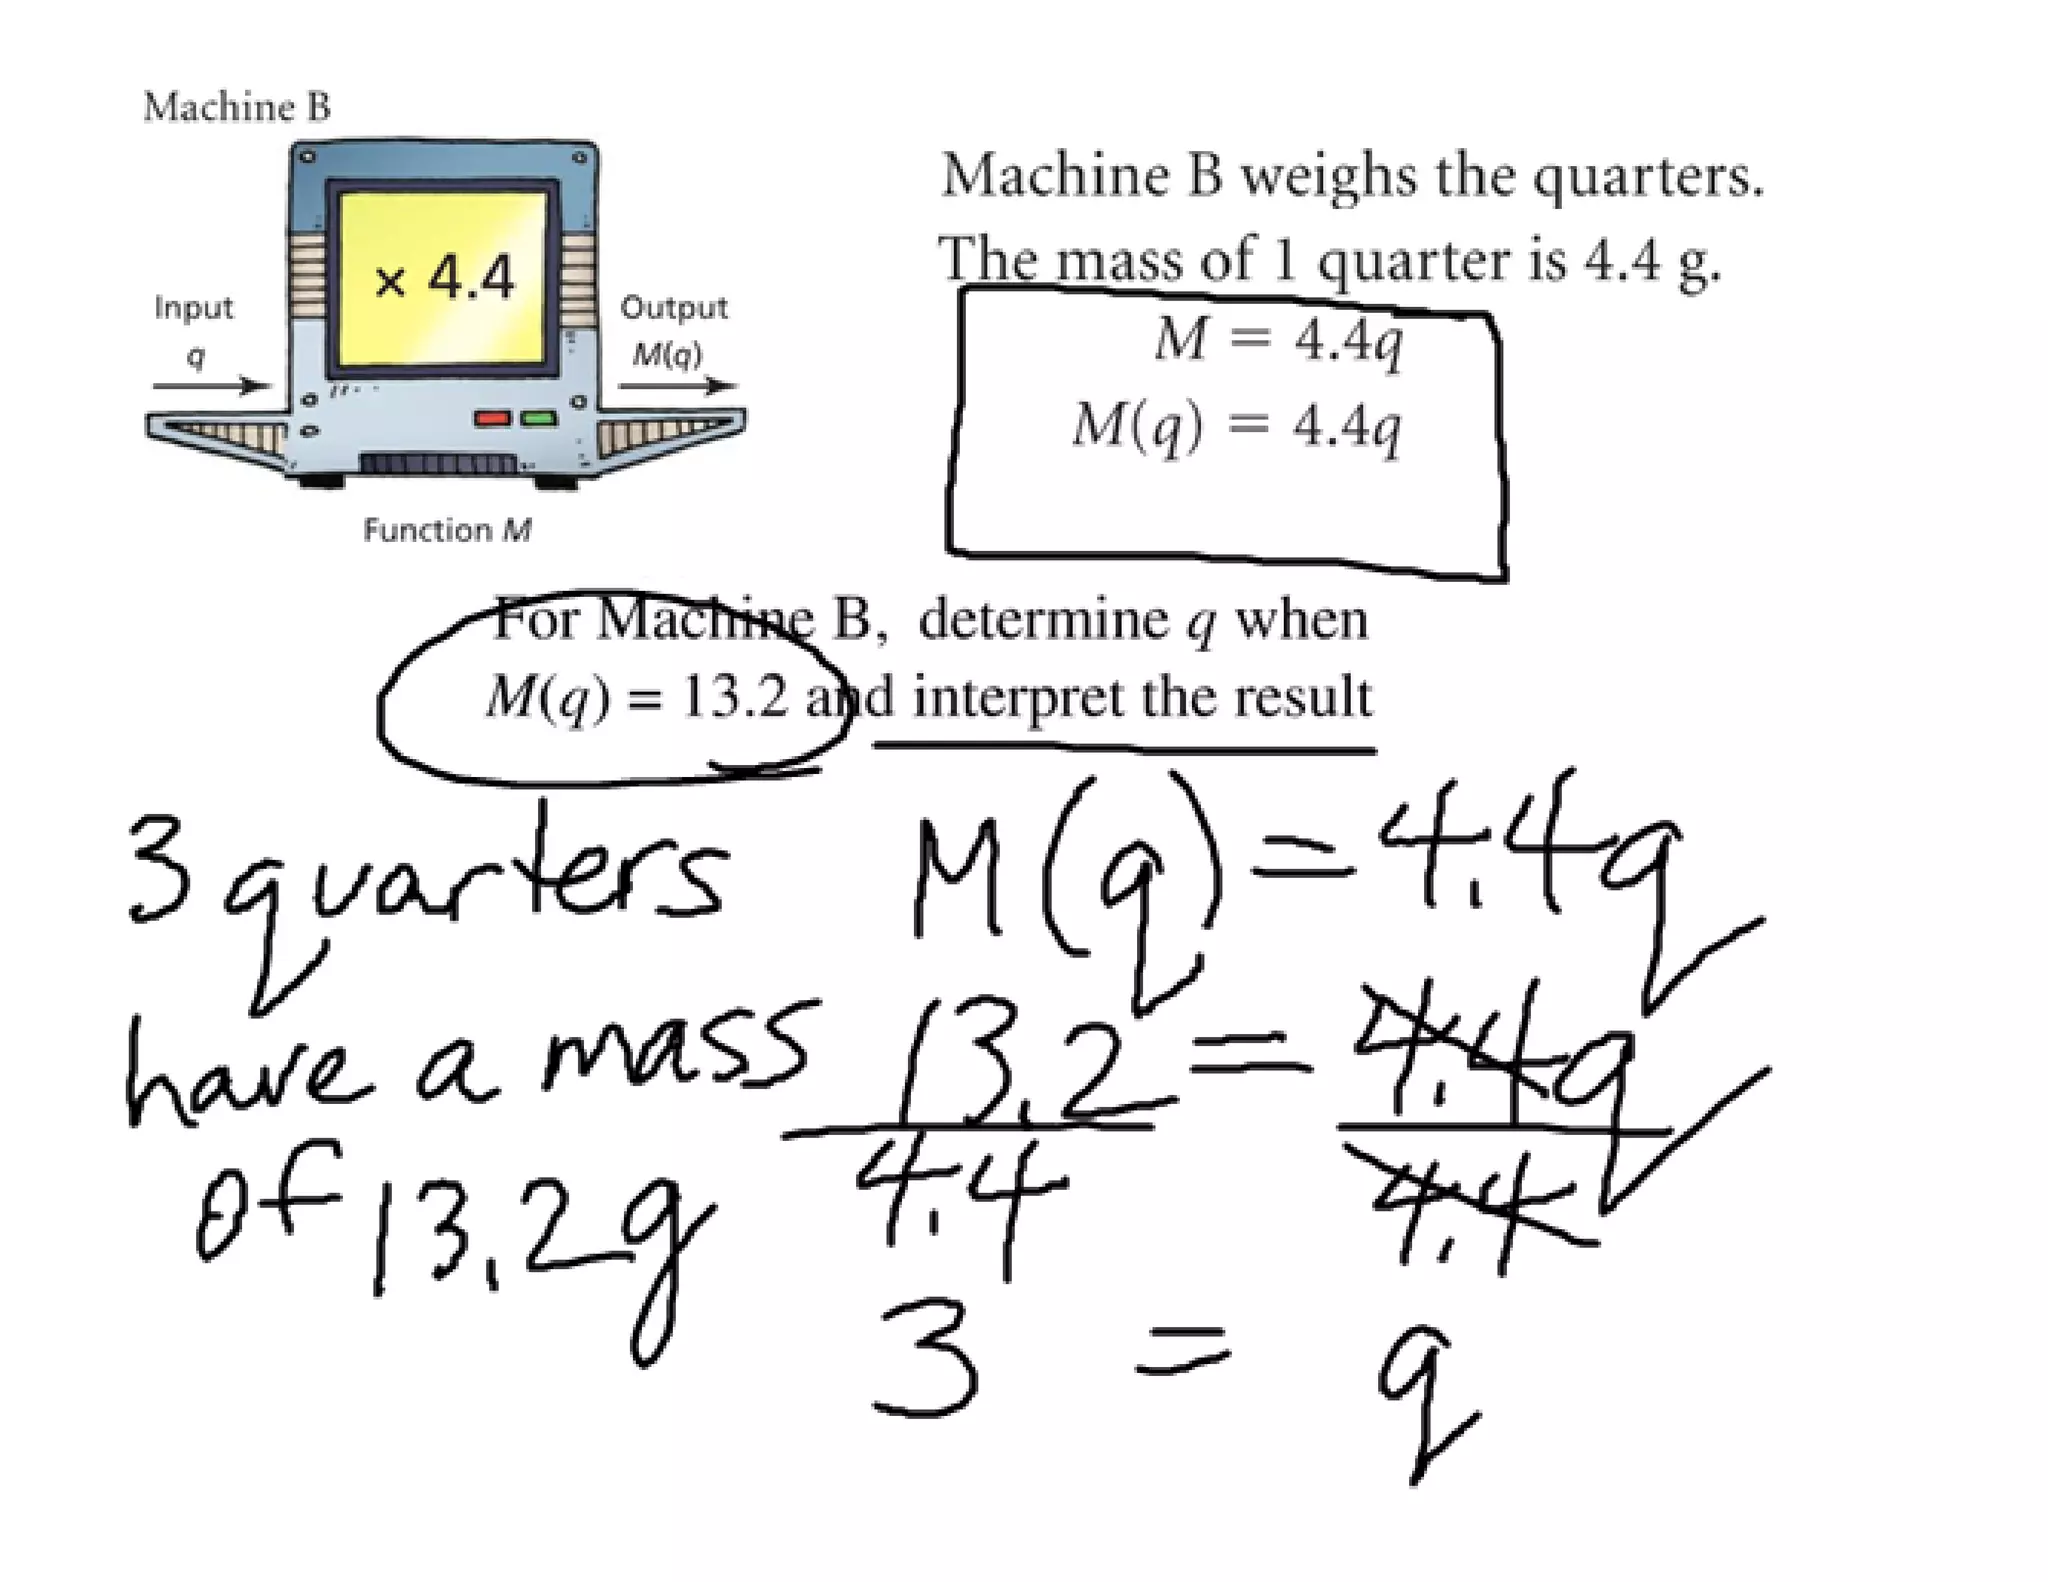 Machine B
× 4.4
Input
q
Output
M(q)
Function M
Machine B weighs the quarters.
The mass of 1 quarter is 4.4 g.
M = 4.4q
M(q) = 4.4q
For Machine B, determine q when
M(q) = 13.2 and interpret the result
3 quarters
have a mass
of 13.2g
M(q) = 4.4q
13.2 = 4.4q
4.4 4.4
3 = q